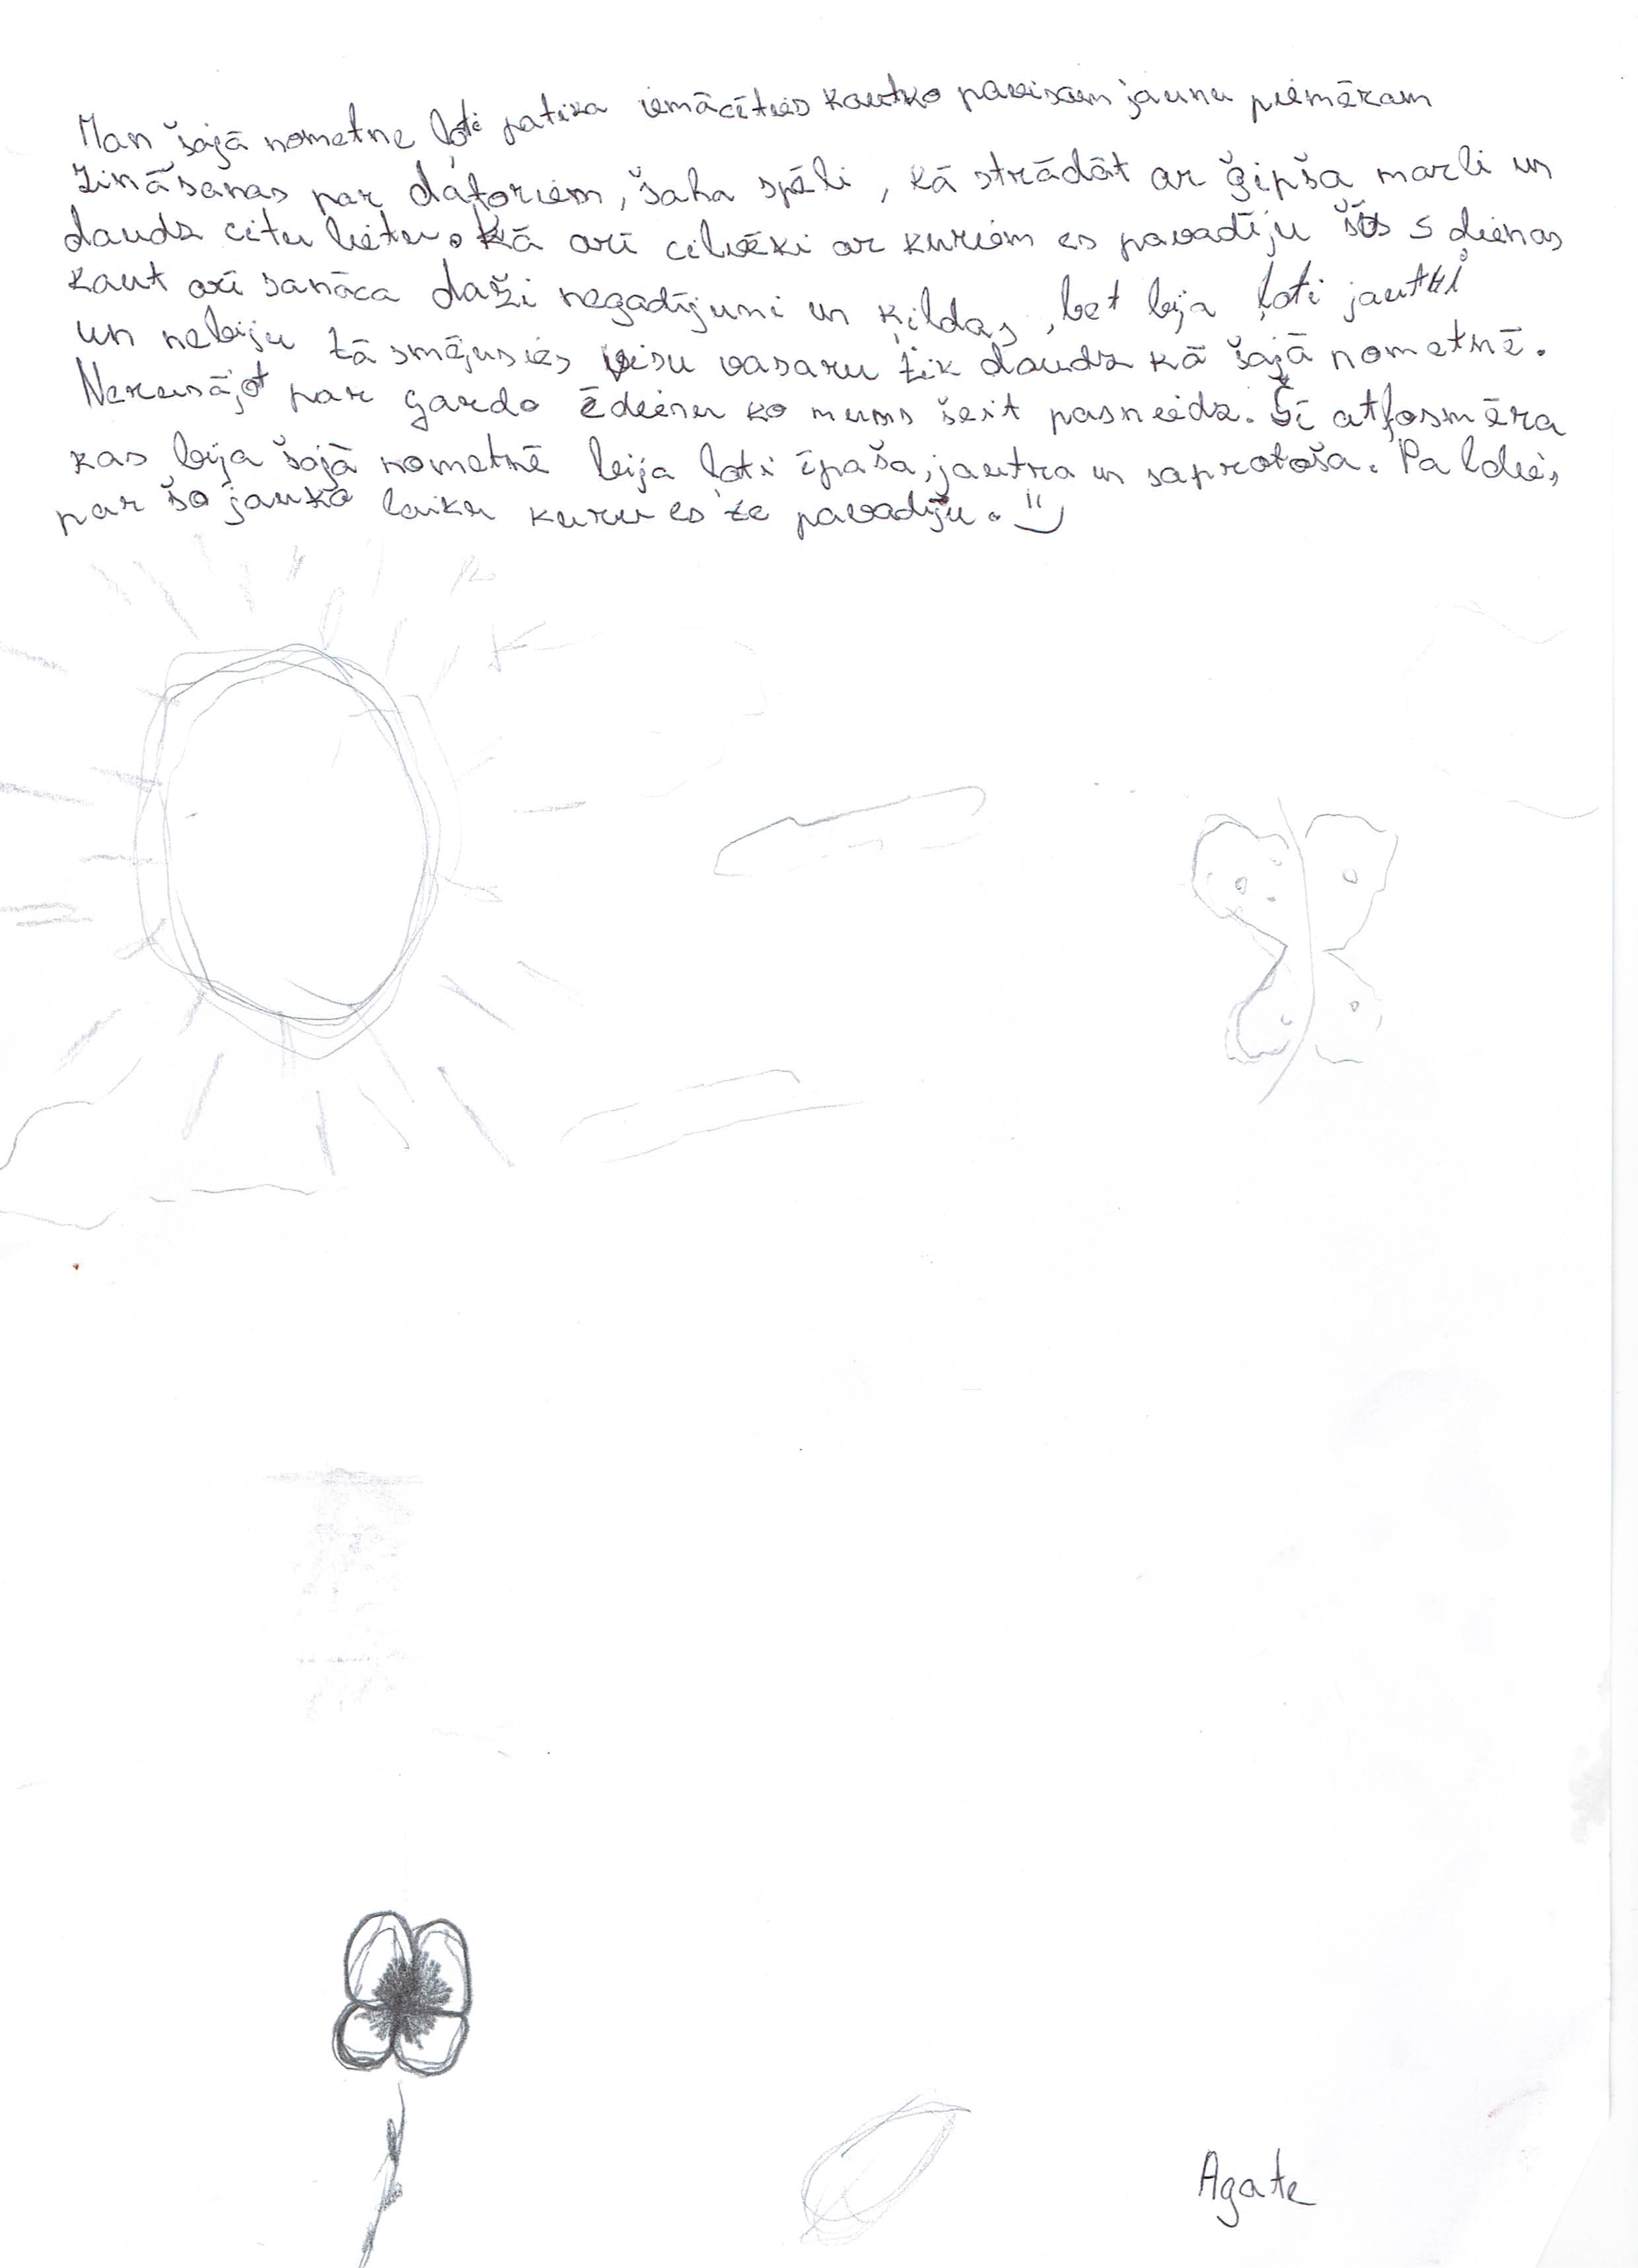 Man šajā nometne ļoti patika iemācīties kautko pavisam jaunu piemēram
zināšanas par datoriem, šaha spēli, kā strādāt ar ģipša marli un
daudz citu lietu. Kā arī cilvēki ar kuriem es pavadīju šīs 5 dienas
kaut arī sanāca daži negadījumi un ķildas, bet bija ļoti jautri
un nebiju tā smējusies visu vasaru tik daudz kā šajā nometnē.
Nerunājot par gardo ēdienu ko mums šeit pasniedz. Šī atfosmēra
kas bija šajā nometnē bija ļoti īpaša, jautra un saprotoša. Paldies,
par šo jauko laiku kuru es te pavadīju. :)
Agate